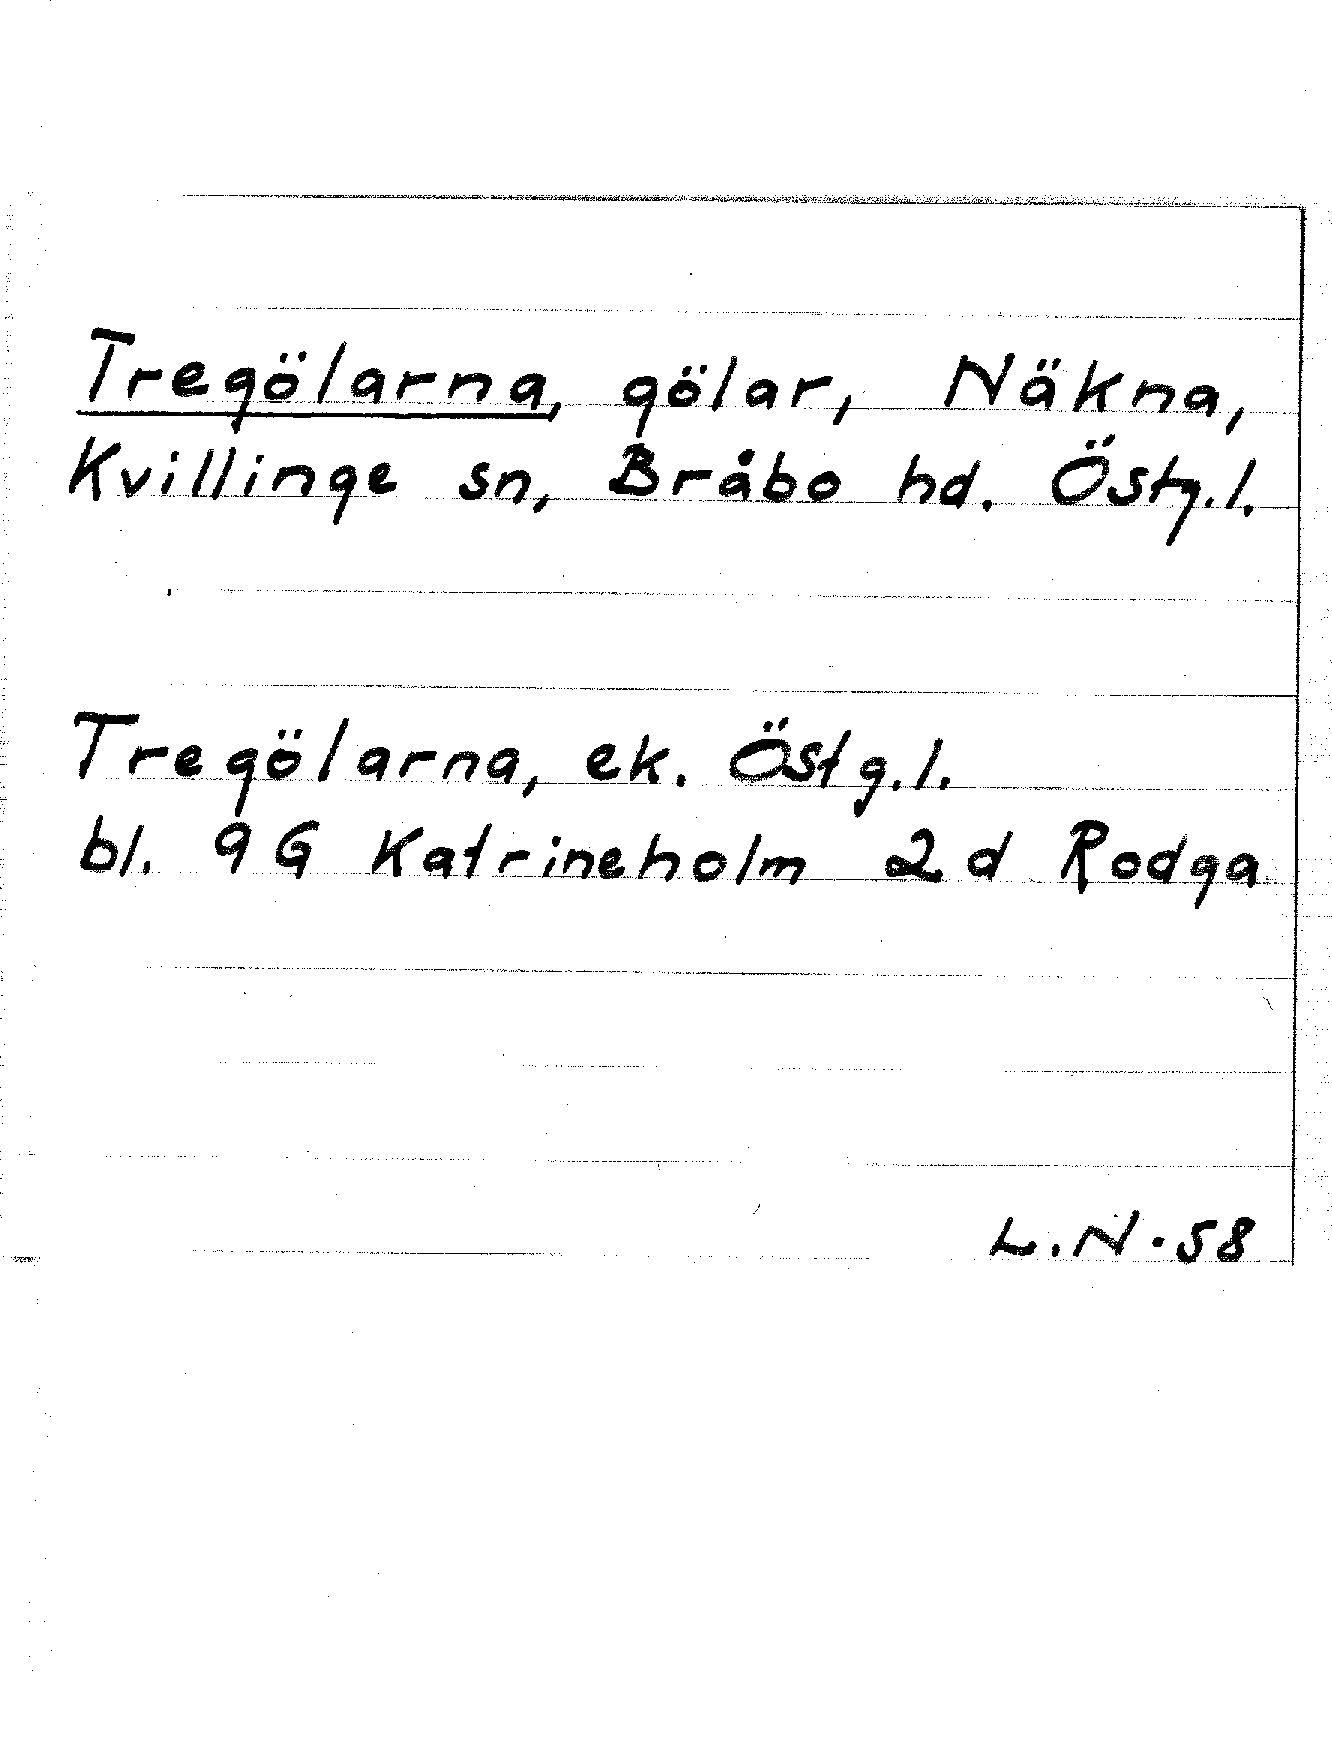 Tregölarna, gölar, Näkna,
Kvillinge sn, Bråbo hd. Östg.l.
Tregölarna, ek. Östg.l.
bl. 9G Katrineholm 2d Rodga
L.N.58